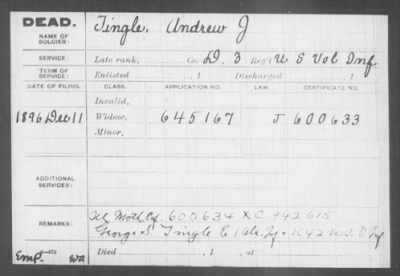 DEAD.
NAME OF SOLDIER:
Tingle, Andrew J
SERVICE:
Late rank, Co. D. 3 Reg't U S Vol Inf
TERM OF SERVICE:
Enlisted , 1 Discharged , 1
DATE OF FILING. CLASS. APPLICATION NO. LAW. CERTIFICATE NO.
Invalid,
1896 Dec 11 Widow, 645167 J 600633
Minor,
ADDITIONAL SERVICES:
REMARKS:
Moth 600634 XC 942615
George S Tingle E 1 Ala. K 42 U.S.
Died , 1 , at